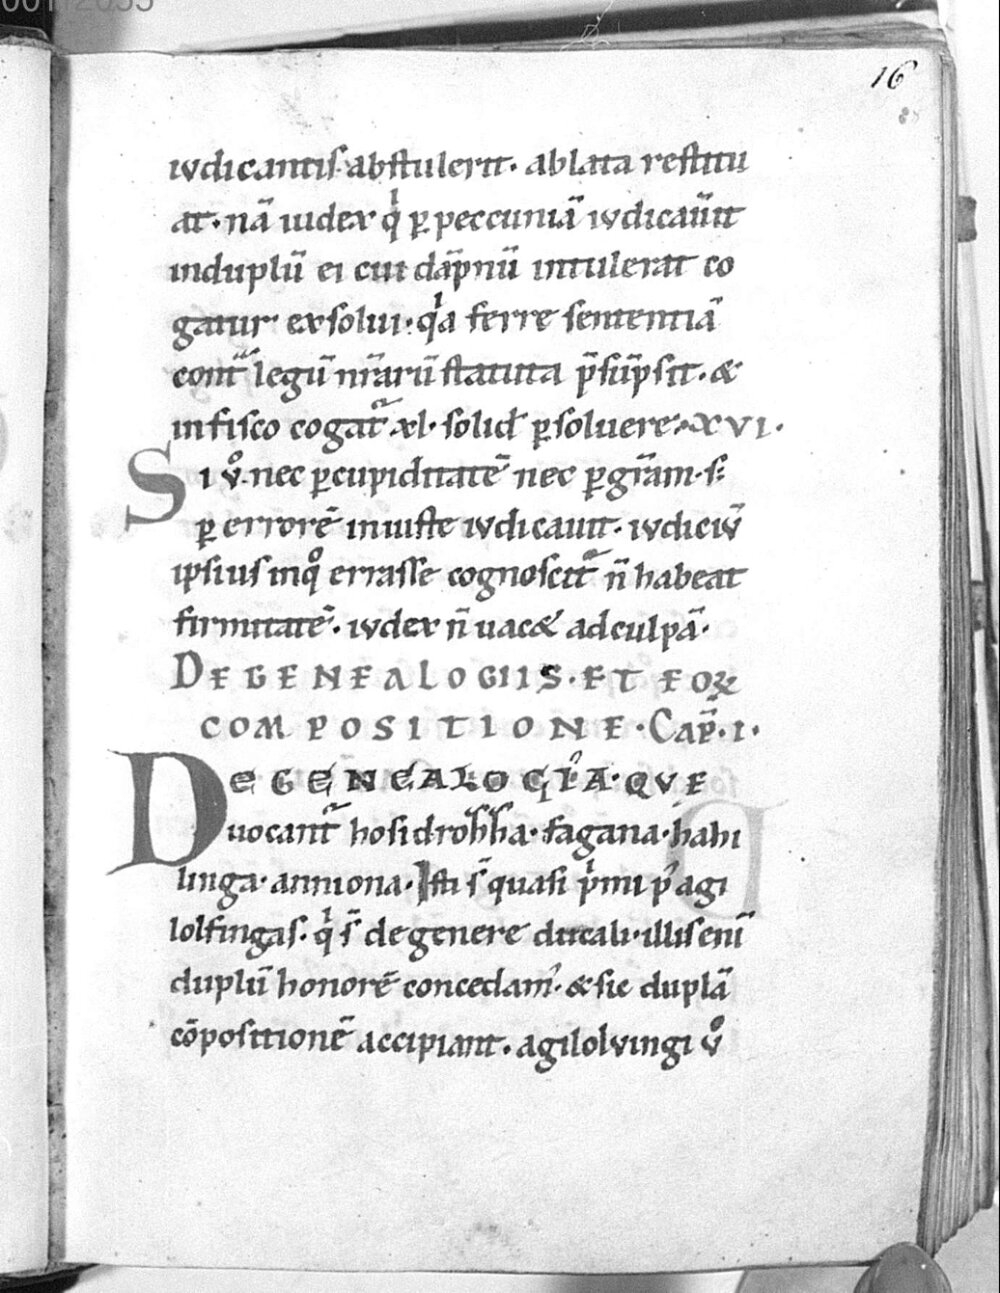 16
iudicantis abstulerit. ablata restitu
at. nā iudex qͥ ꝑ peccuniā iudicau̅it
induplū ei cui dāpnū intulerat co
gatur exsolui. qͥa ferre sententiā
cont̄ legū nr̄arū statuta p̄sūpsit. &
infisco cogat̄ xl. solid ꝑsoluere. XVI.
Si v̊. nec ꝑcupiditatē nec ꝑgr̄am. s:
ꝑ errorē iniuste iudicauit. iudiciū
ipsius inqͦ errasse cognoscit̄ n̄ habeat
firmitatē. iudex n̄ uac& adculpā.
DE GENEALOGIIS. ET EOꝝ
COMPOSITIONE. Cap̄. I.
DE GENEALOGIA. QVE
uocant̄ hosidrohha. fagana. hahi
linga. anniona. Isti s̄ quasi pͥmi p᷒ agi
lolfingas. qͥ s̄ degenere ducali. illis eni̅
duplū honorē concedam᷒. & sic duplā
cōpositionē accipiant. agilolvingi v̊